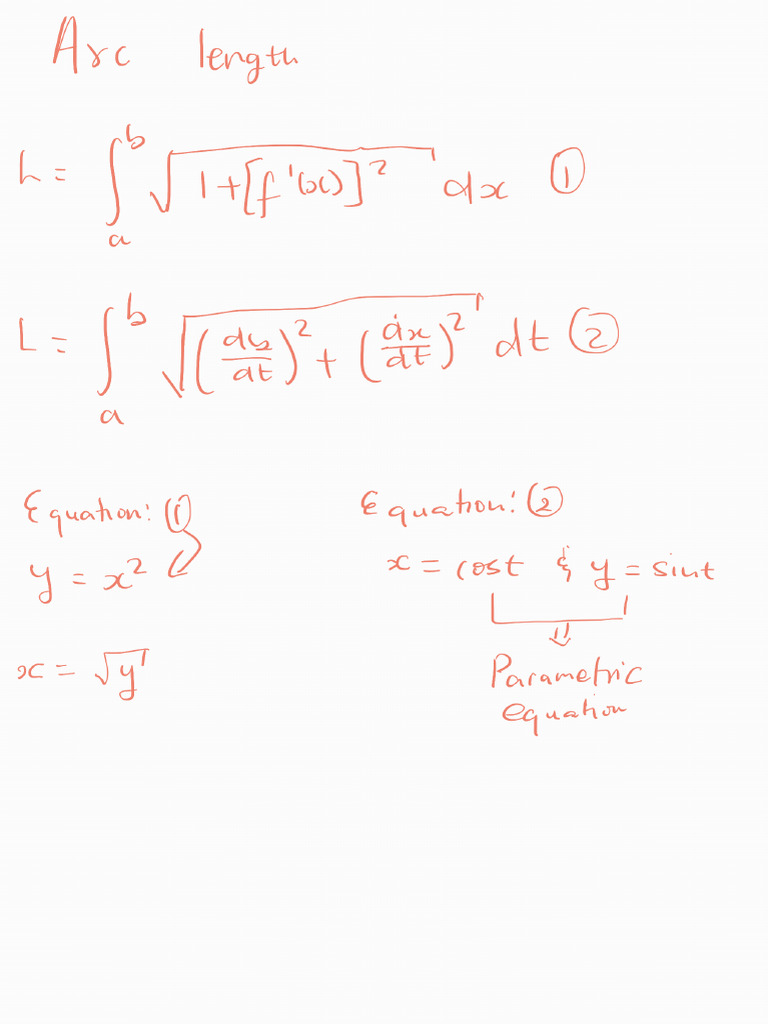 Arc length
L = ∫_a^b √(1+[f'(x)]²) dx ①
L = ∫_a^b √((dy/dt)² + (dx/dt)²) dt ②
Equation: ①
y = x²
x = √y
Equation: ②
x = cost & y = sint
⇓
Parametric
equation